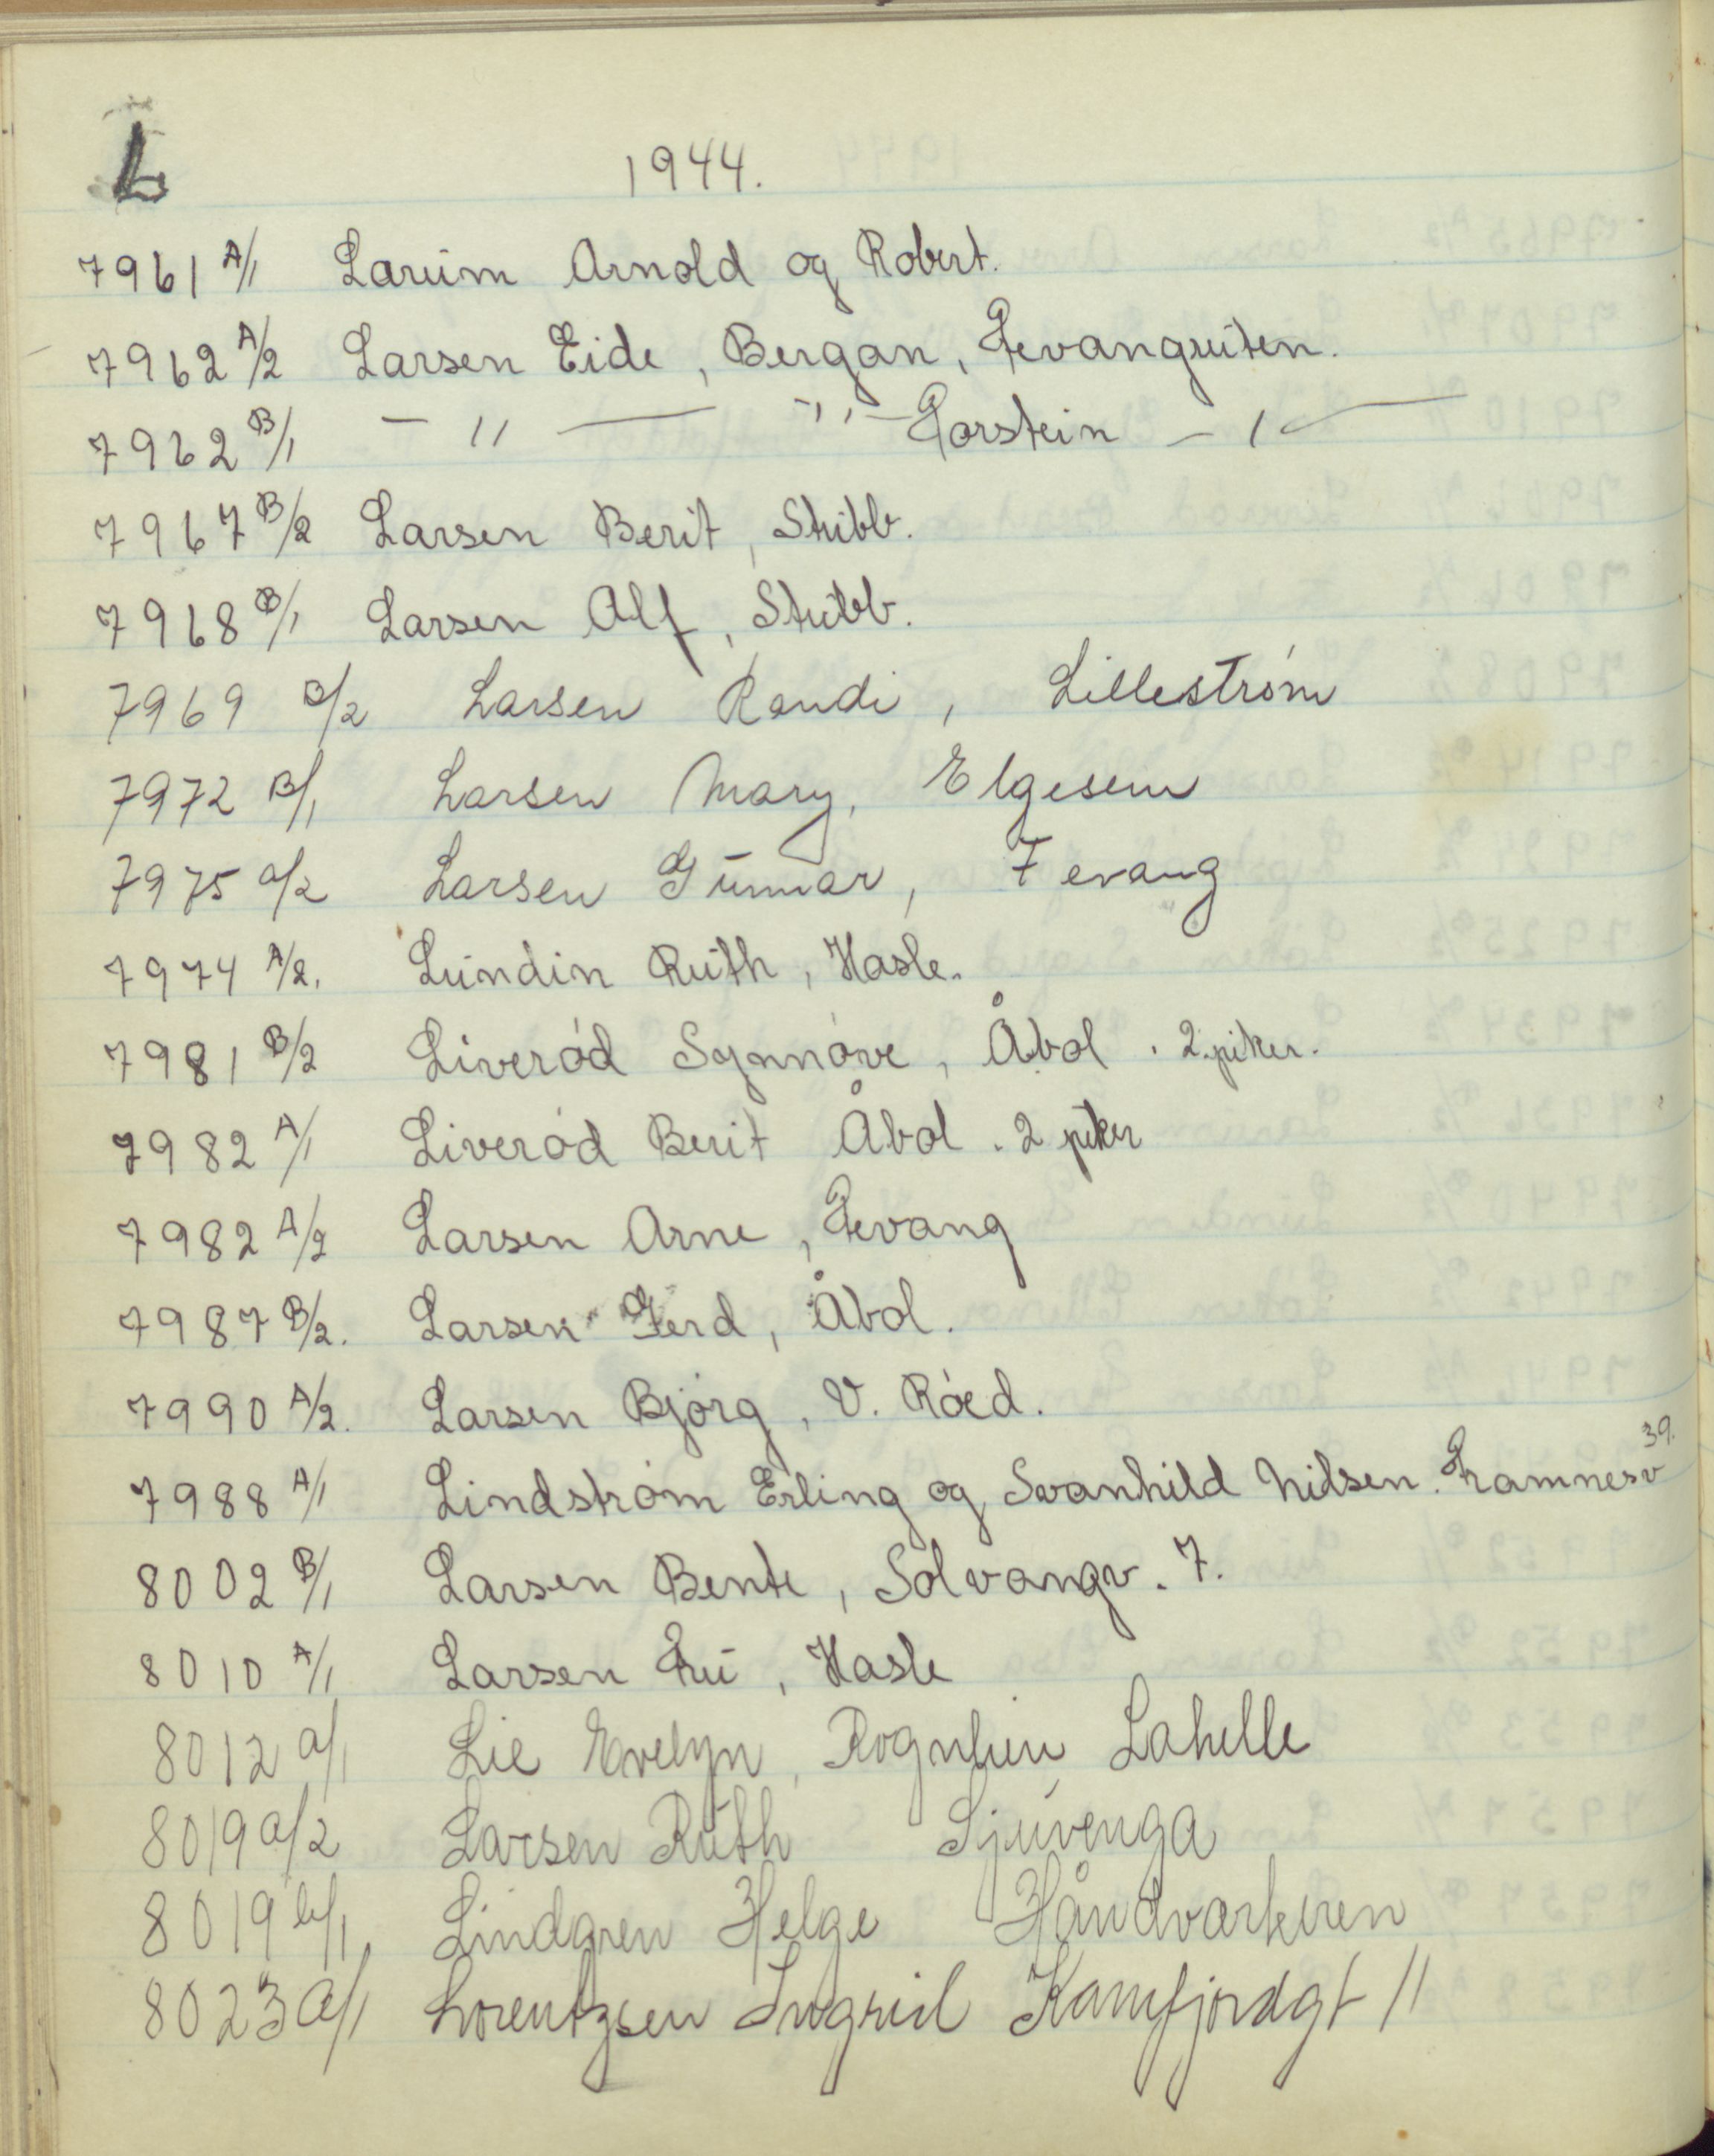 L
1944.
7961 A/1 Larum Arnold og Robert.
7962 A/2 Larsen Eide, Bergan, Fevangruten.
7962 B/1 - " — " - Torstein - " -
7967 B/2 Larsen Berit, Stubb.
7968 B/1 Larsen Alf, Stubb.
7969 B/2 Larsen Randi, Lilleström
7972 B/1 Larsen Mary, Elgesem
7975 a/2 Larsen Gunnar, Fevang
7974 A/2. Lundin Ruth, Hasle.
7981 B/2 Liveród Synnóve, Åbol. 2 piker.
7982 A/1 Liveród Berit Åbol. 2 piker
7982 A/2 Larsen Arne, Fevang
7987 B/2. Larsen Gerd, Åbol.
7990 A/2. Larsen Bjórg, V. Róed.
39.
7988 A/1 Lindstróm Erling og Svanhild Nilsen. Framnesv
8002 B/1 Larsen Bente, Solvangv. 7.
8010 A/1 Larsen Fru, Hasle
8012 a/1 Lie Evelyn, Rognlien Lahelle
8019 a/2 Larsen Ruth Sjuvenga
8019 b/1 Lindgren Helge Håndvarkeren
8023 a/1 Lorentzsen Ingrid Kamfjordgt 11